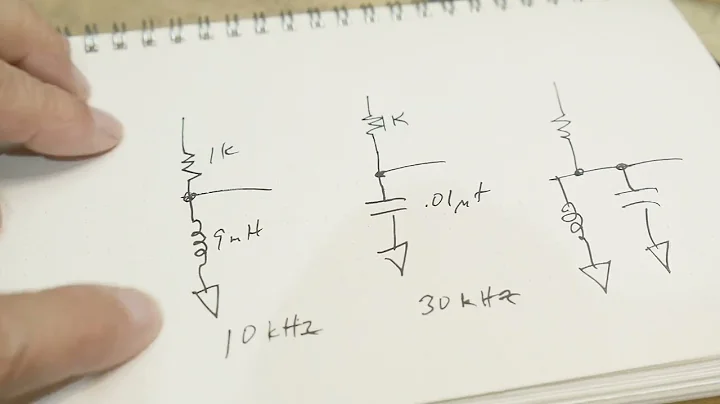 1K
9mH
10 kHz
1K
.01μf
30 kHz